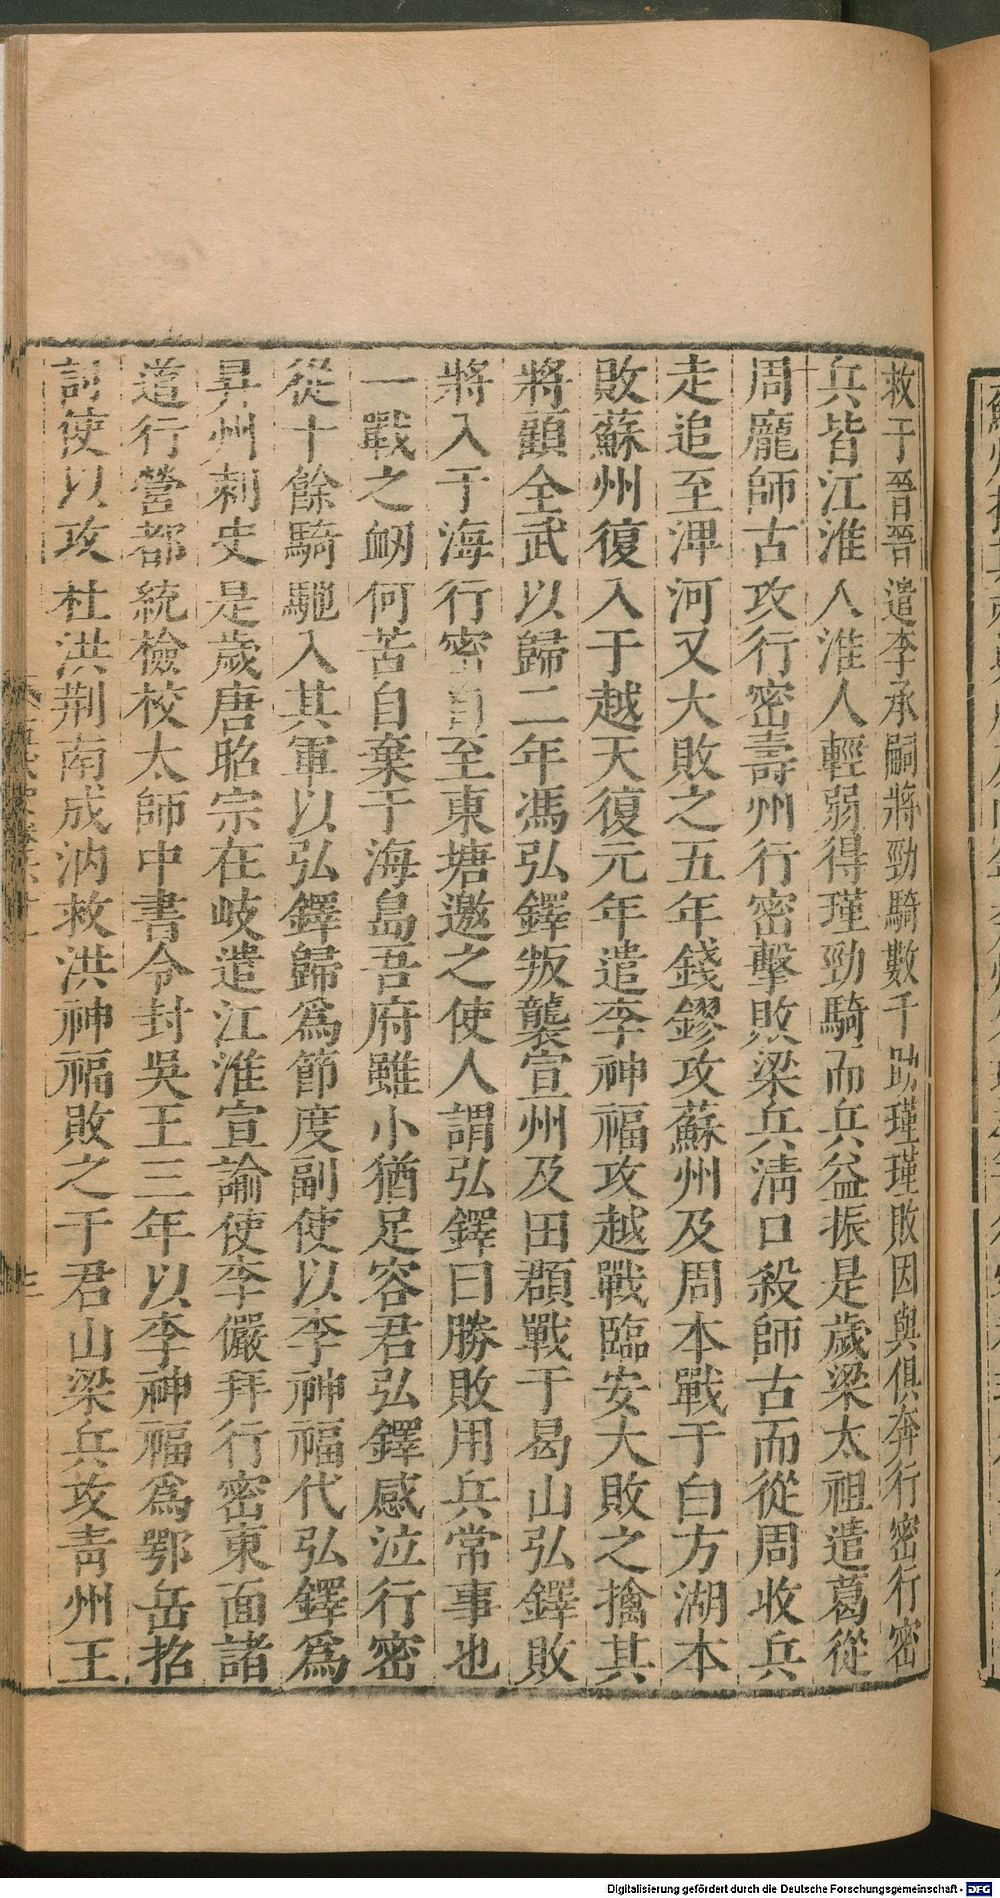 救于晉晉遣李承嗣將勁騎數千助瑾瑾敗因與俱奔行密行密
兵皆江淮人淮人輕弱得瑾勁騎而兵益振是歲梁太祖遣葛從
周龐師古攻行密壽州行密擊敗梁兵淸口殺師古而從周收兵
走追至渒河又大敗之五年錢鏐攻蘇州及周本戰于白方湖本
敗蘇州復入于越天復元年遣李神福攻越戰臨安大敗之擒其
將顧全武以歸二年馮弘鐸叛襲宣州及田頵戰于曷山弘鐸敗
將入于海行密自至東塘邀之使人謂弘鐸曰勝敗用兵常事也
一戰之衂何苦自棄于海島吾府雖小猶足容君弘鐸感泣行密
從十餘騎馳入其軍以弘鐸歸爲節度副使以李神福代弘鐸爲
昇州刺史是歲唐昭宗在岐遣江淮宣諭使李儼拜行密東面諸
道行營都統檢校太師中書令封吳王三年以李神福爲鄂岳招
討使以攻杜洪荆南成汭救洪神福敗之于君山梁兵攻靑州王
Digitalisierung gefördert durch die Deutsche Forschungsgemeinschaft - DFG